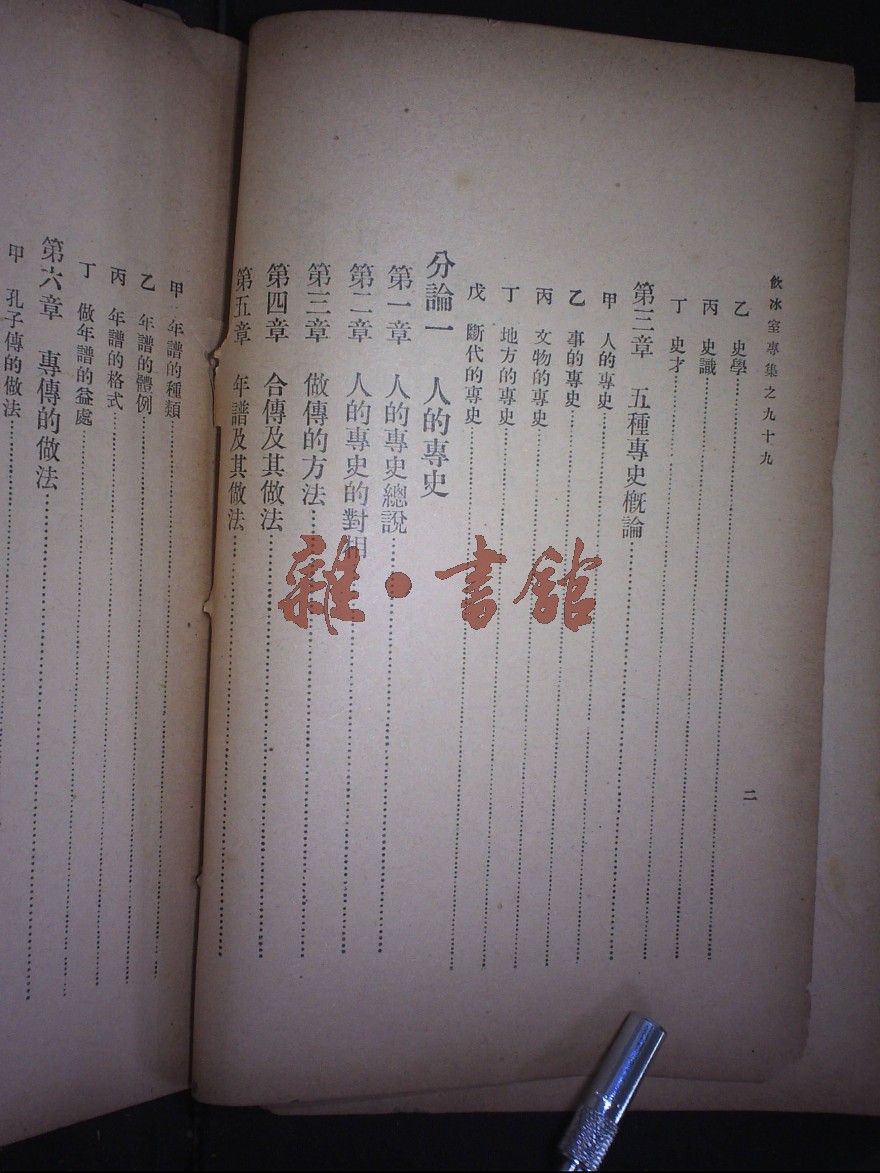 飲冰室專集之九十九
二
乙 史學
丙 史識
丁 史才
第三章 五種專史概論
甲 人的專史
乙 事的專史
丙 文物的專史
丁 地方的專史
戊 斷代的專史
分論一 人的專史
第一章 人的專史總說
第二章 人的專史的對相
第三章 做傳的方法
第四章 合傳及其做法
第五章 年譜及其做法
甲 年譜的種類
乙 年譜的體例
丙 年譜的格式
丁 做年譜的益處
第六章 專傳的做法
甲 孔子傳的做法
雜·書館